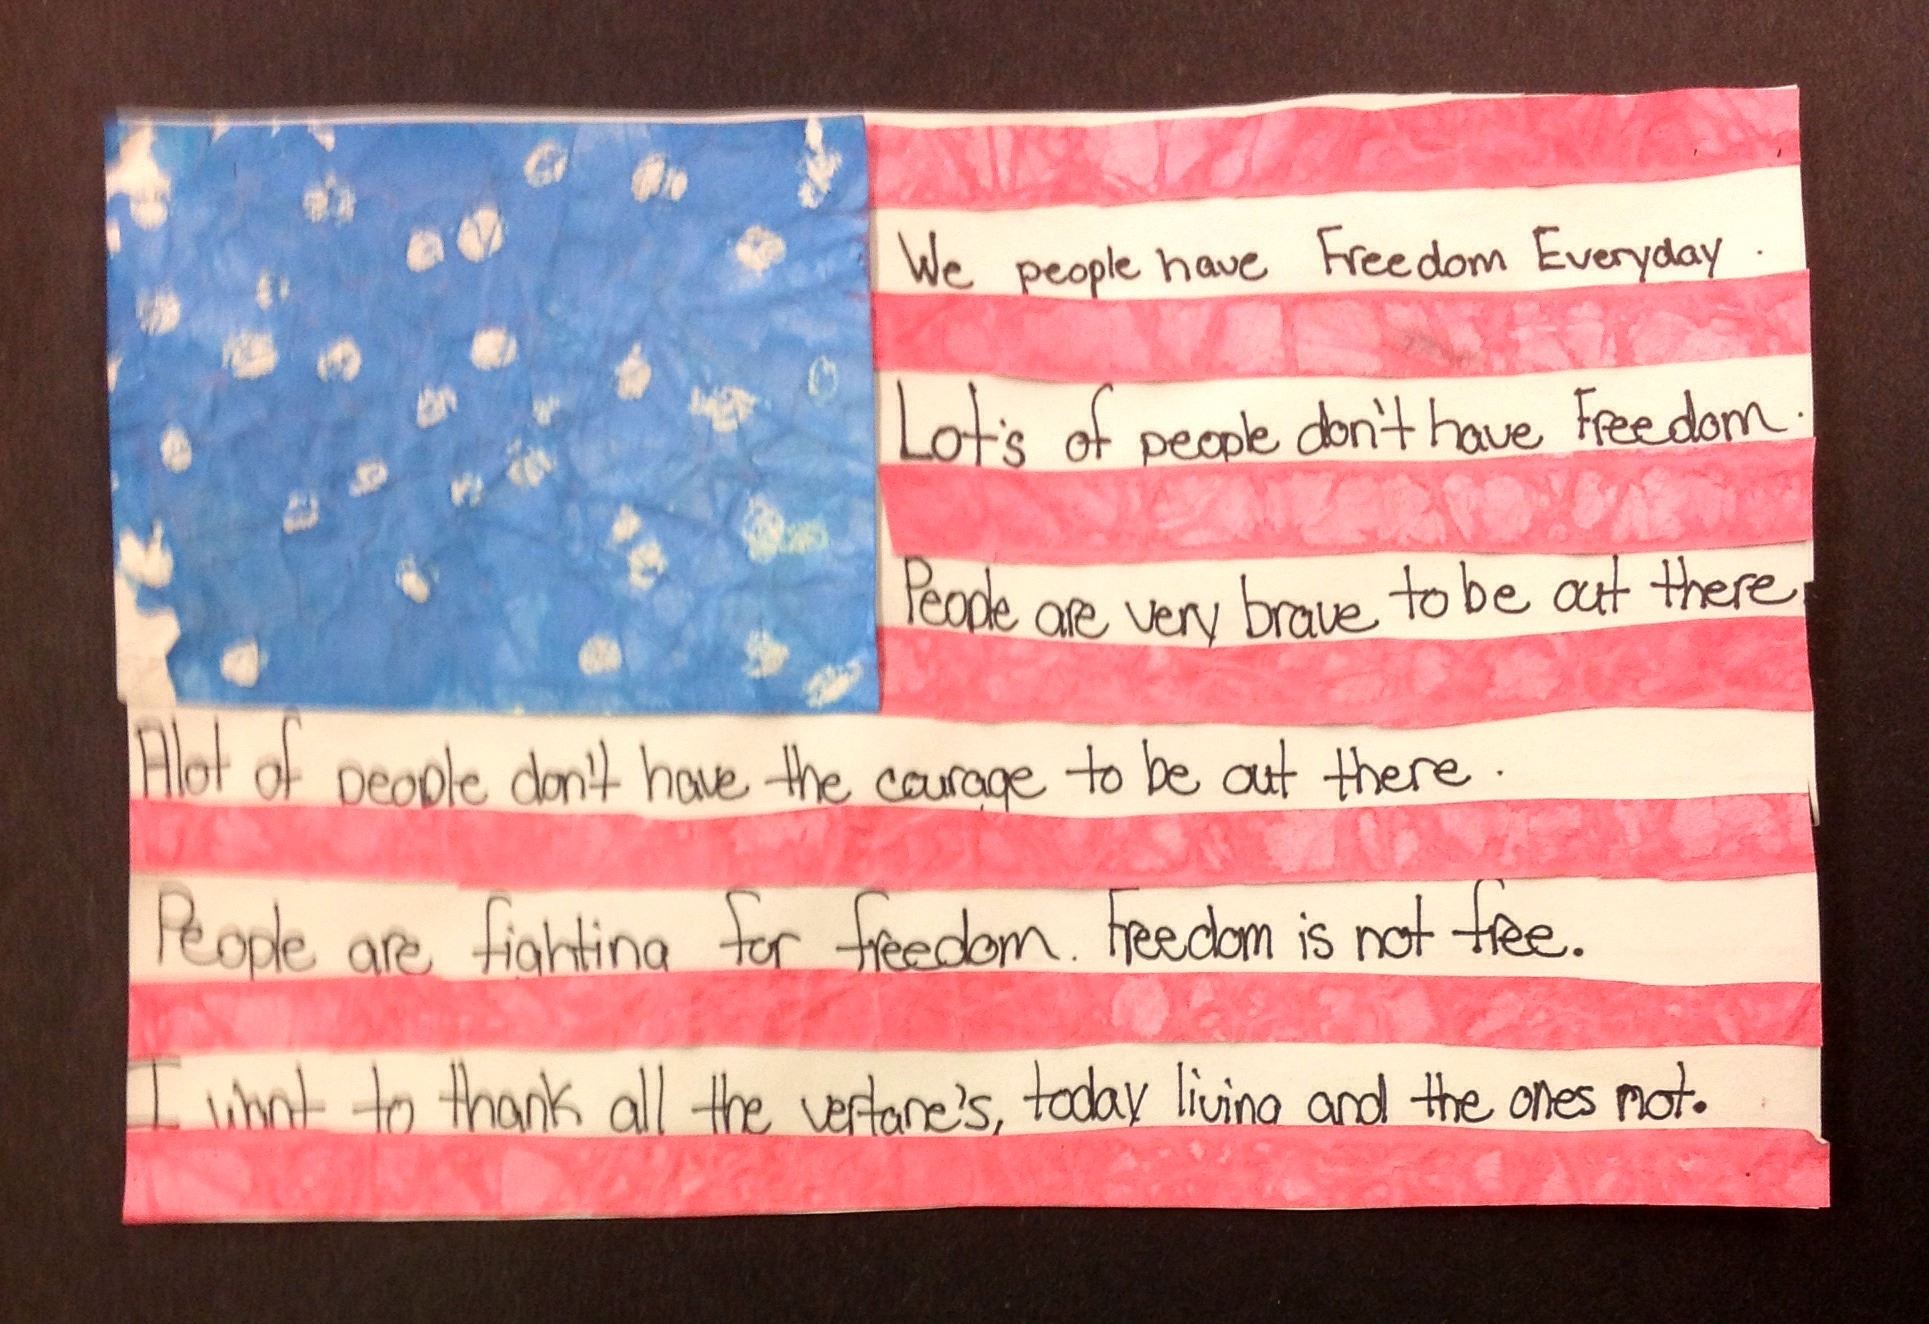 We people have Freedom Everyday.
Lot's of people don't have Freedom.
People are very brave to be out there.
Alot of people don't have the courage to be out there.
People are fighting for freedom. Freedom is not free.
I whnt to thank all the vertane's, today living and the ones not.